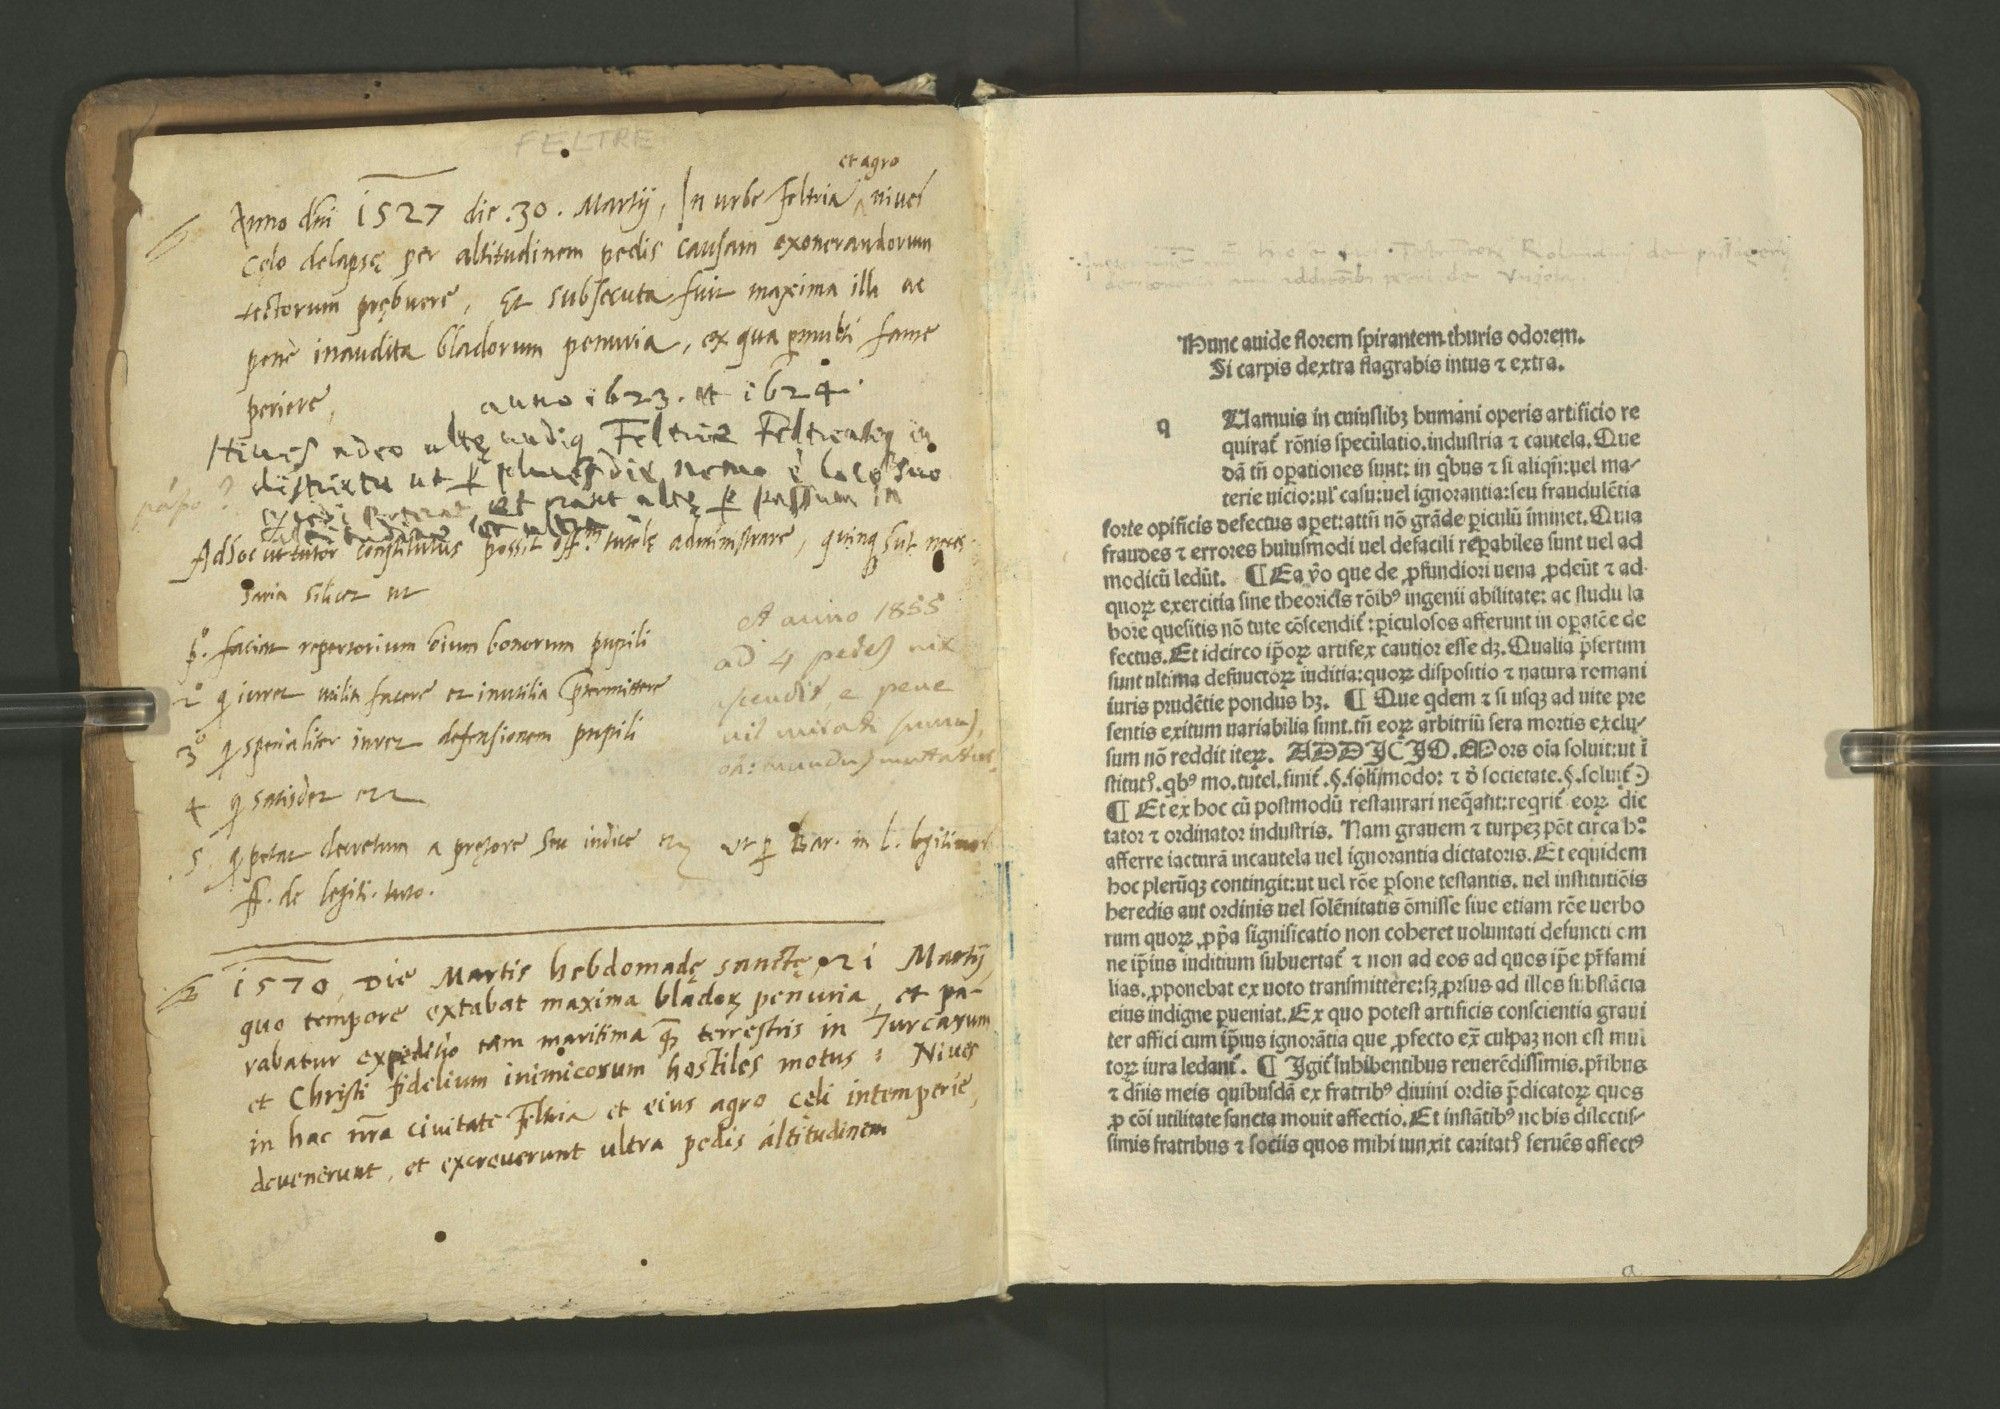 FELTRE
et agro
Anno dñi 1527 die .30. Martij, In urbe Feltria niues
cęlo delapsę per altitudinem pedis causam exonerandorum
tectorum prębuere, Et subsecuta fuit maxima illa ac
pene inaudita bladorum penuria, ex qua pmulti fame
periere,
anno 1623. et 1624.
Niues adeo altę undiq Feltrie
districtu ut nemo e loco suo
altę passum in
papo ?
Ad hoc ut tutor constitutus possit off.m tutelę administrare, quinq sũt neces-
saria silicet ut
pº. faciat repertorium oĩum bonorum pupili
2º q iuret utilia facere et inutilia ptermittere
3º q specialiter iuret defensionem pupili
4 q satisdet etc
5 q petat decretum a prętore seu iudice etc ut p Bar. in l. legitimos
ff. de legiti. tuto.
et anno 1855
ad 4 pedes nix
1570, Die Martis hebdomadę sanctę, 21 Martij,
quo tempore extabat maxima bladoꝝ penuria, et pa-
rabatur expeditio tam maritima ꝙ terrestris in Turcarum
et Christi fidelium inimicorum hostiles motus: Niues
in hac nrã ciuitate Feltria et eius agro cęli intemperie,
deuenerunt, et excreuerunt ultra pedis altitudinem
Hunc auide florem spirantem thuris odorem.
Si carpis dextra flagrabis intus ⁊ extra.
q Uamuis in cuiuslibꝫ humani operis artificio re
quirat̃ rõnis speculatio.industria ⁊ cautela.Que
dã tñ operationes sunt: in qͥbus ⁊ si aliqñ:uel ma/
terie uicio:ul̃ casu:uel ignorantia:seu fraudulẽtia
forte opificis defectus apet:attñ nõ grãde piculũ iminet.Quia
fraudes ⁊ errores huiusmodi uel defacili repabiles sunt uel ad
modicũ ledũt. ¶ Ea v̊o que de ꝓfundiori uena ꝓdeũt ⁊ ad
quoꝝ exercitia sine theoricis rõibꝰ ingenii abilitate: ac studii la
bore quesitis nõ tute cõscendit̃:piculosos afferunt in opatõe de
fectus.Et idcirco ip̃oꝝ artifex cautior esse dꝫ.Qualia p̃sertim
sunt ultima defunctoꝝ iuditia:quoꝝ dispositio ⁊ natura romani
iuris prudẽtie pondus hꝫ. ¶ Que qdem ⁊ si usqꝫ ad uite pre
sentis exitum uariabilia sunt.tñ eoꝝ arbitriũ sera mortis exclu/
sum nõ reddit iteꝝ. ADDICIO.Mors oĩa soluit:ut ĩ
stitut̃.qbꝰ mo.tutel.finit̃.§.sol̃imodo: ⁊ ð societate.§.soluit̃:)
¶ Et ex hoc cũ postmodũ restaurari neq̃ant:reqrit̃ eoꝝ dic
tator ⁊ ordinator industris. Nam grauem ⁊ turpeꝫ põt circa hº
afferre iacturã incautela uel ignorantia dictatoris.Et equidem
hoc plerũqꝫ contingit:ut uel rõe p̱sone testantis. uel institutiõis
heredis aut ordinis uel solẽnitatis õmisse siue etiam rõe uerbo
rum quoꝝ ꝓp̃a significatio non coheret uoluntati defuncti om
ne ip̃ius iuditium subuertat̃ ⁊ non ad eos ad quos ip̃e pr̃fami
lias.ꝓponebat ex uoto transmittere:sꝫ ꝓrsus ad illos substãcia
eius indigne pueniat.Ex quo potest artificis conscientia graui
ter affici cum ip̃ius ignorãtia que ꝓfecto ex̃ culpaꝫ non est mul
toꝝ iura ledant̃. ¶ Igit̃ iubibentibus reuerẽdissimis.pr̃ibus
⁊ dñis meis quibusdã ex fratribꝰ diuini ordĩs p̃dicatoꝝ quos
ꝓ cõi utilitate sancta mouit affectio.Et instãtibꝰ nobis dilectis/
simis fratribus ⁊ sociis quos mihi iunxit caritat̃ feruẽs affectꝰ
a